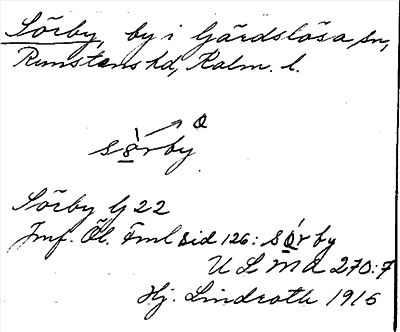 Sörby, by i Gärdslösa sn,
Runstens hd, Kalm. l.
sörby
Sörby G 22
Jmf. Öl. Fml sid 126: sörby
U L M A 270:7
Hj. Lindroth 1916